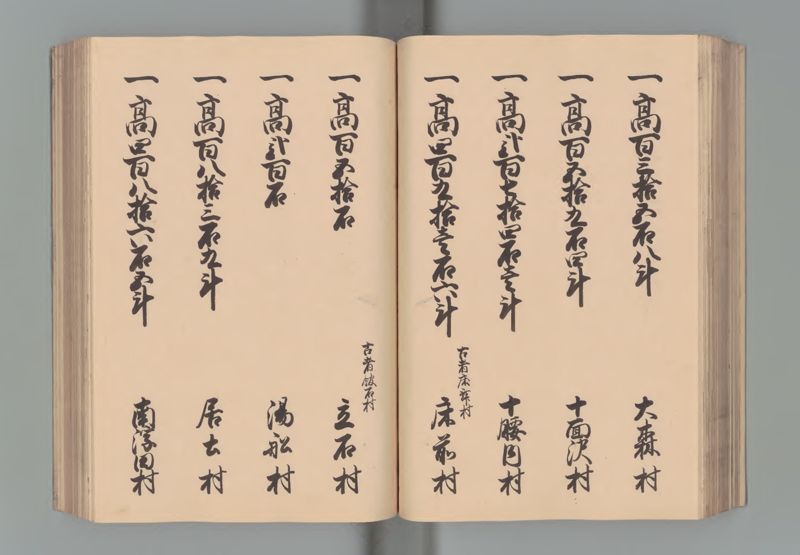 一 高百三拾五石八斗 大森村
一 高百五拾九石四斗 十面沢村
一 高弐百七拾四石壱斗 十腰内村
一 高四百九拾壱石六斗 床前村
古者床舞村
一 高百五拾石 立石村
古者 石村
一 高弐百石 湯舩村
一 高百八拾三石九斗 居土村
一 高四百八拾六石五斗 南浮田村